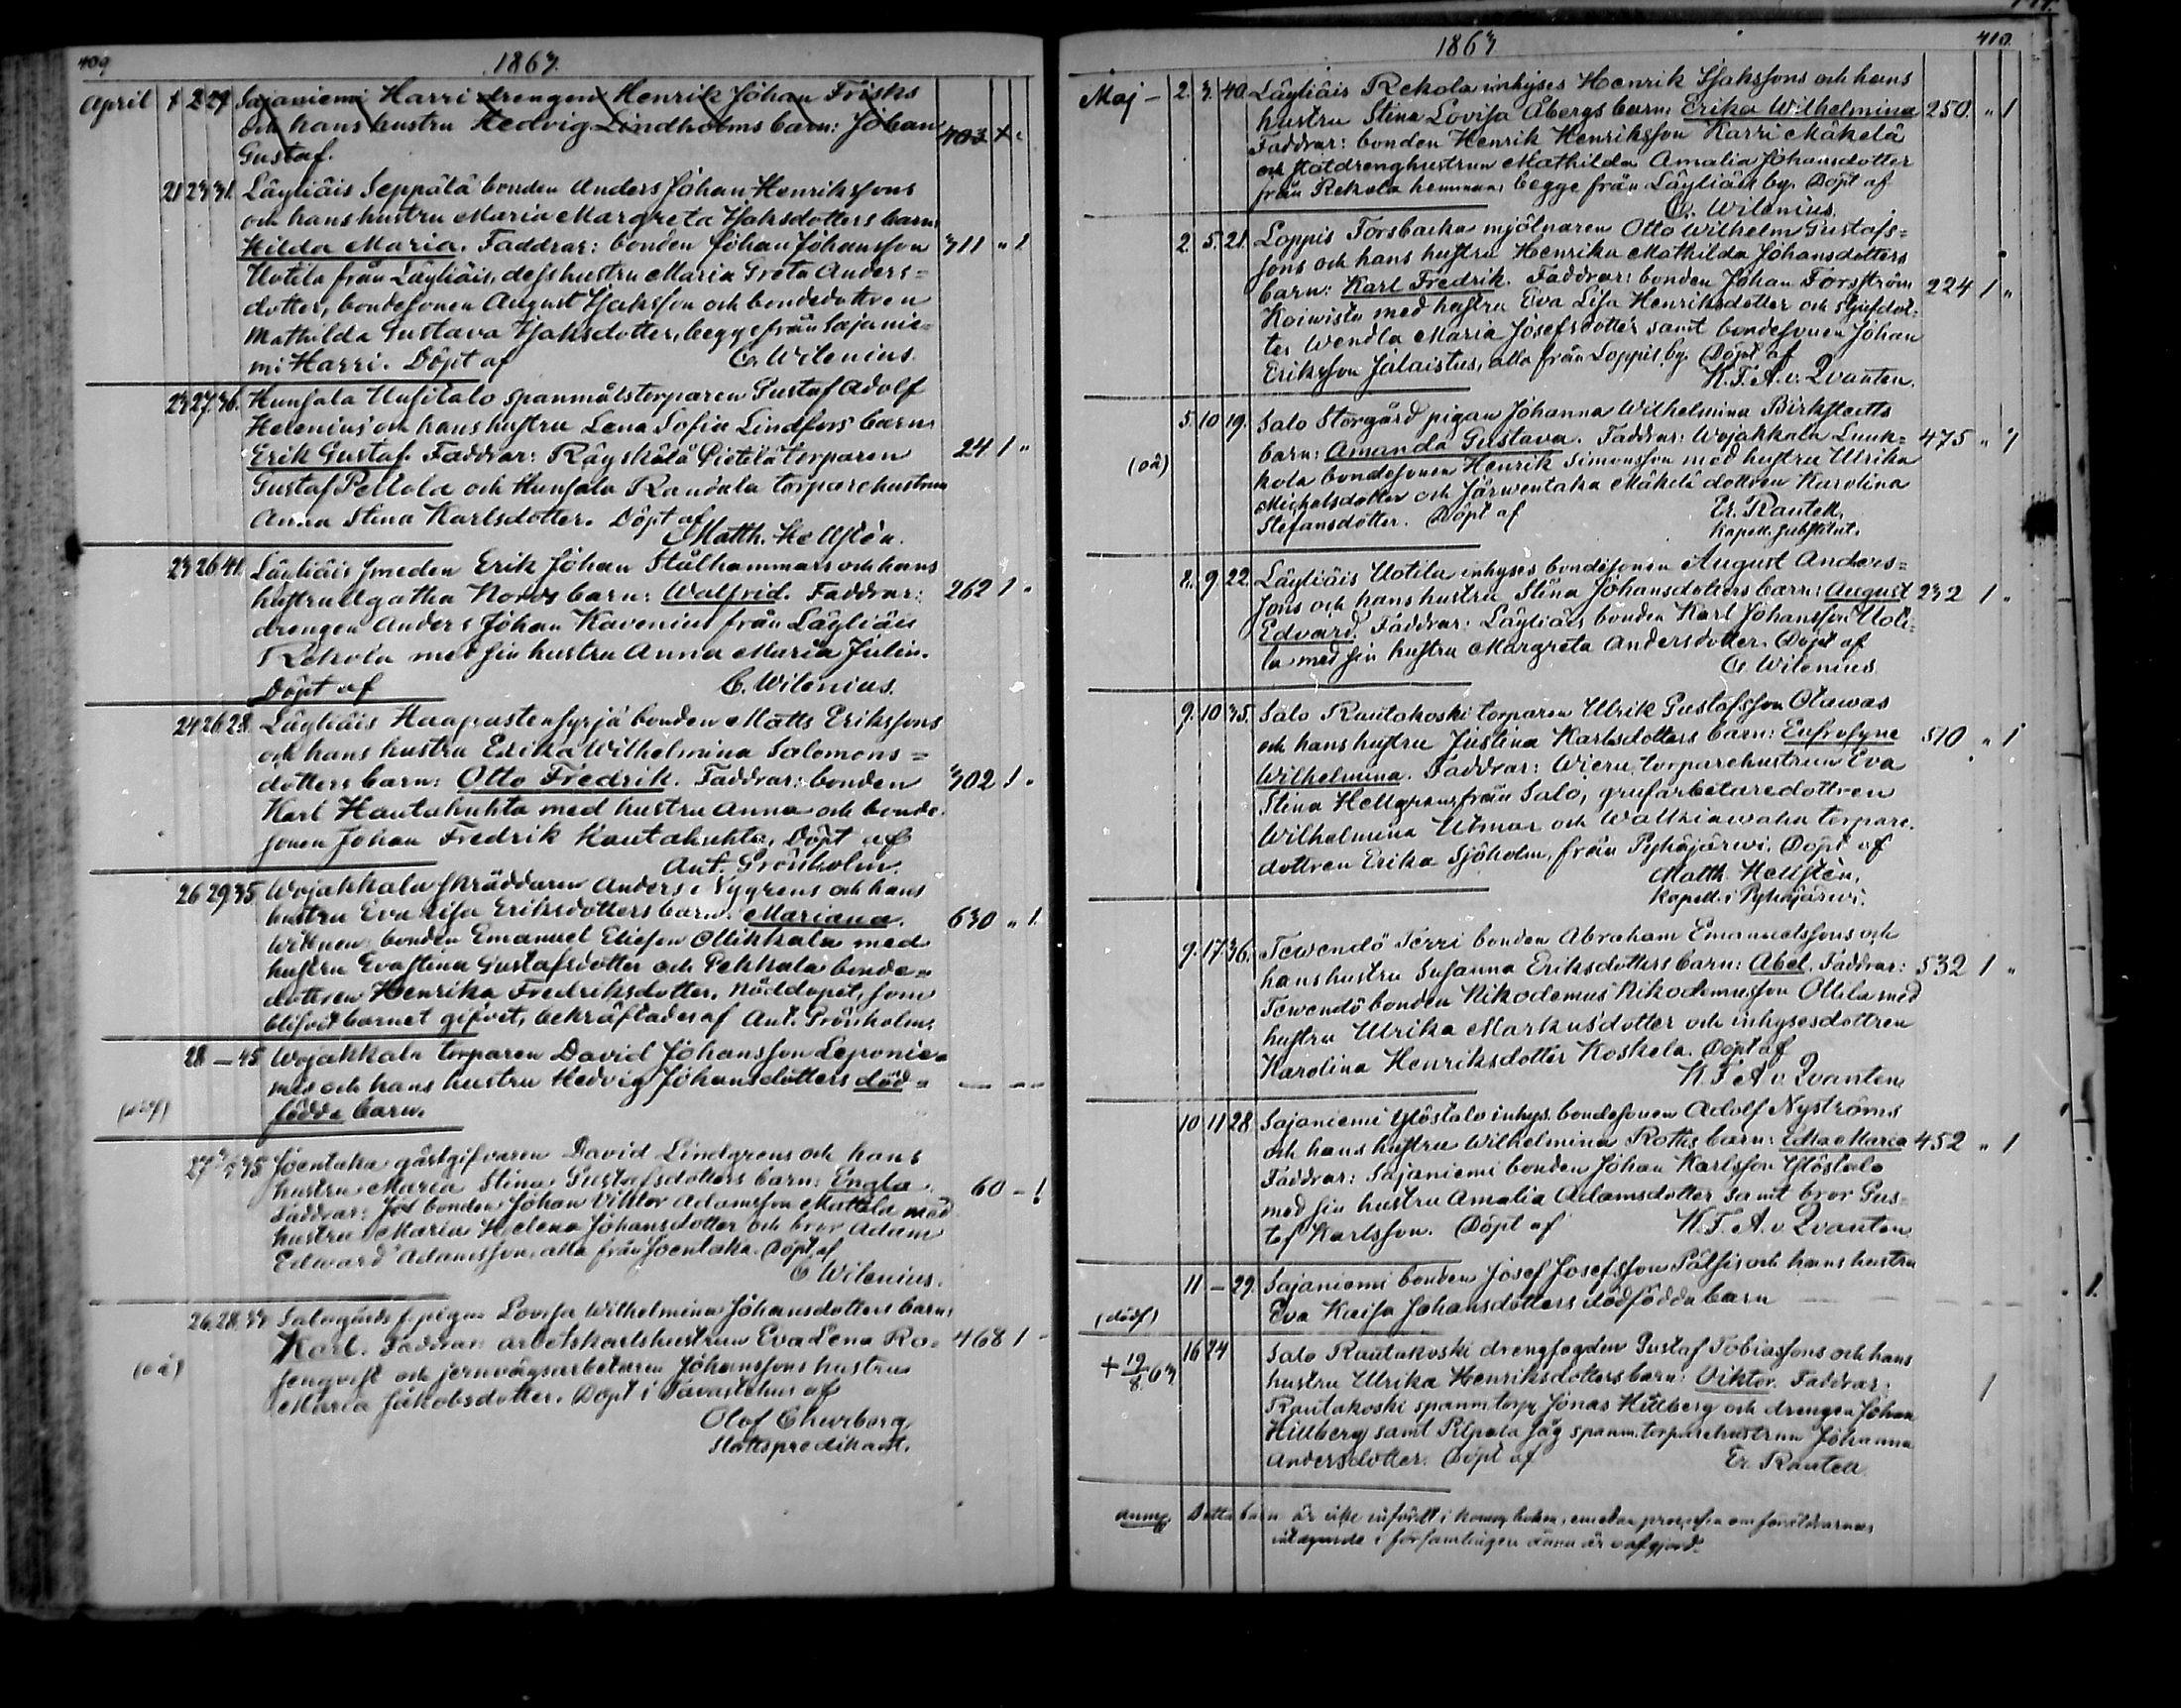 409
1863.
April 1 2 29 Sajaniemi Harri drengen Henrik Johan Frisks
och hans hustru Hedvig Lindholms barn: Johan 403
Gustaf.
21 23 31. Läyliäis Seppälä bonden Anders Johan Henrikssons
och hans hustru Maria Margreta Isaksdotters barn:
Hilda Maria. Faddrar: bonden Johan Johansson 311 " 1
Uotila från Läyliäis, dess hustru Maria Greta Anders=
dotter, bondesonen August Isaksson och bondedottren
Mathilda Gustava Isaksdotter, begge från Sajanie=
mi Harri. Döpt af C. Wilenius.
23 27 36. Hunsala Uusitalo spanmålstorparen Gustaf Adolf
Helenius och hans hustru Lena Sofia Lindfors barn:
Erik Gustaf. Faddrar: Räyskälä Pietilä torparen 24 1 "
Gustaf Pellola och Hunsala Randala torparehustrun
Anna Stina Karlsdotter. Döpt af
Matth. Hellstén.
23 26 41. Läyliäis smeden Erik Johan Stålhammars och hans
hustru Agatha Nords barn: Walfrid. Faddrar: 262 1 "
drengen Anders Johan Kavenius från Läyliäis
Rekola med sin hustru Anna Maria Julin.
Döpt af C. Wilenius.
24 26 28. Läyliäis Haapastensyrjä bonden Matts Erikssons
och hans hustru Erika Wilhelmina Salomons=
dotters barn: Otto Fredrik. Faddrar: bonden 302 1 "
Karl Hautakuhta med hustru Anna och bonde
sonen Johan Fredrik Hautakuhta. Döpt af
Ant. Grönholm.
26 29 35 Wojakkala skräddaren Anders Nygrens och hans
hustru Eva Lisa Eriksdotters barn: Mariana. 630 " 1.
Wittnen: bonden Emanuel Elieson Ollikkala med
hustru Evastina Gustafsdotter och Pekkala bonde=
dottren Henrika Fredriksdotter. Nöddopet, som
blifvit barnet gifvet, bekräftades af Ant. Grönholm.
28 — 45 Wojakkala torparen David Johansson Leponie=
mis och hans hustru Hedvig Johansdotters död= — — —
födda barn.
27 3/5 35 Joentaka gästgifvaren David Lindgrens och hans
hustru Maria Stina Gustafsdotters barn: Engla. 60 – 1
Faddrar: bonden Johan Viktor Adamsson Mattila med
hustru Maria Helena Johansdotter och bror Adam
Edward Adamsson, alla från Joentaka. Döpt af
C. Wilenius.
26. 28. Salogårds f. pigan Lovisa Wilhelmina Johansdotters barn:
Karl. Faddrar: arbetskarlshustrun Eva Lena Ro= 468 1 –
(oä) senqvist och jernvägsarbetaren Johanssons hustru
Maria Jakobsdotter. Döpt i Tavastehus af
Olof Ehwrborg
Slottspredikant.
410.
1863
Maj – 2. 3. 40. Läyliäis Rekola inhyses Henrik Isakssons och hans
hustru Stina Lovisa Åbergs barn: Erika Wilhelmina 250. " 1
Faddrar: bonden Henrik Henriksson Harri Mäkelä
och statdrenghustrun Mathilda Amalia Johansdotter
från Rekola hemman, begge från Läyliäis by. Döpt af
C. Wilenius.
2. 5. 21. Loppis Forsbacka mjölnaren Otto Wilhelm Gustafs=
sons och hans hustru Henrika Mathilda Johansdotters
barn: Karl Fredrik. Faddrar: bonden Johan Forsström 224 1 "
Koiwisto med hustru Eva Lisa Henriksdotter och styfdot=
ter Wendla Maria Josefsdotter samt bondesonen Johan
Eriksson Jalaistus, alla från Loppis by. Döpt af
K. F. A. v. Qvanten.
5. 10 19. Salo Storgård pigan Johanna Wilhelmina Birkstedts
barn: Amanda Gustava. Faddrar: Wojakkala Luuk= 475 " 1
(oä) kola bondesonen Henrik Simonsson med hustru Ulrika
Michelsdotter och Järwentaka Mäkelä dottren Karolina
Stefansdotter. Döpt af Er. Rantell,
Kapell. Substitut.
8. 9 22. Läyliäis Uotila inhyses bondesonen August Anders=
sons och hans hustru Stina Johansdotters barn: August 232 1 "
Edvard. Faddrar: Läyliäis bonden Karl Johansson Uoti=
la med sin hustru Margreta Andersdotter. Döpt af
C. Wilenius.
9. 10 35. Salo Rautakoski torparen Ulrik Gustafsson Olawas
och hans hustru Justina Karlsdotters barn: Eufrosyne 510 " 1
Wilhelmina. Faddrar: Wieru torparehustrun Eva
Stina Hellgrens från Salo, grufarbetaredottren
Wilhelmina Utmar och Walkiawaha torpare
dottren Erika Sjöholm, från Pyhäjärwi. Döpt af
Matth. Hellstén,
Kapell. i Pyhäjärwi.
9. 17 36. Tewendö Terri bonden Abraham Emanuelssons och
hans hustru Susanna Eriksdotters barn: Abel. Faddrar: 532 1 "
Tewendö bonden Nikodemus Nikodemusson Ottila med
hustru Ulrika Markusdotter och inhysesdottren
Karolina Henriksdotter Koskela. Döpt af
K. F. A. v. Qvanten
10 11 28 Sajaniemi Ylöstalo inhys. bondesonen Adolf Nyströms
och hans hustru Wilhelmina Roths barn: Edla Maria 452 " 1
Faddrar: Sajaniemi bonden Johan Karlsson Ylöstalo
med sin hustru Amalia Adamsdotter samt bror Gus=
taf Karlsson. Döpt af K. F. A. v. Qvanten
11 – 29. Sajaniemi bonden Josef Josefsson Pälsis och hans hustru
(dödf) Eva Kaisa Johansdotters dödfödda barn — — — — 1.
16 24 Salo Rautakoski drengfogden Gustaf Tobiassons och hans
+ 19/8 63 hustru Ulrika Henriksdotters barn: Viktor. Faddrar:
Rautakoski spanm. torp. Jonas Hillberg och drengen Johan 1
Hillberg samt Pilpala Såg spanm. torparehustrun Johanna
Andersdotter. Döpt af Er. Rantell
anmg. Detta barn är icke infördt i kommunionboken, emedan om föräldrarnas
i församlingen ännu är oafgjord.